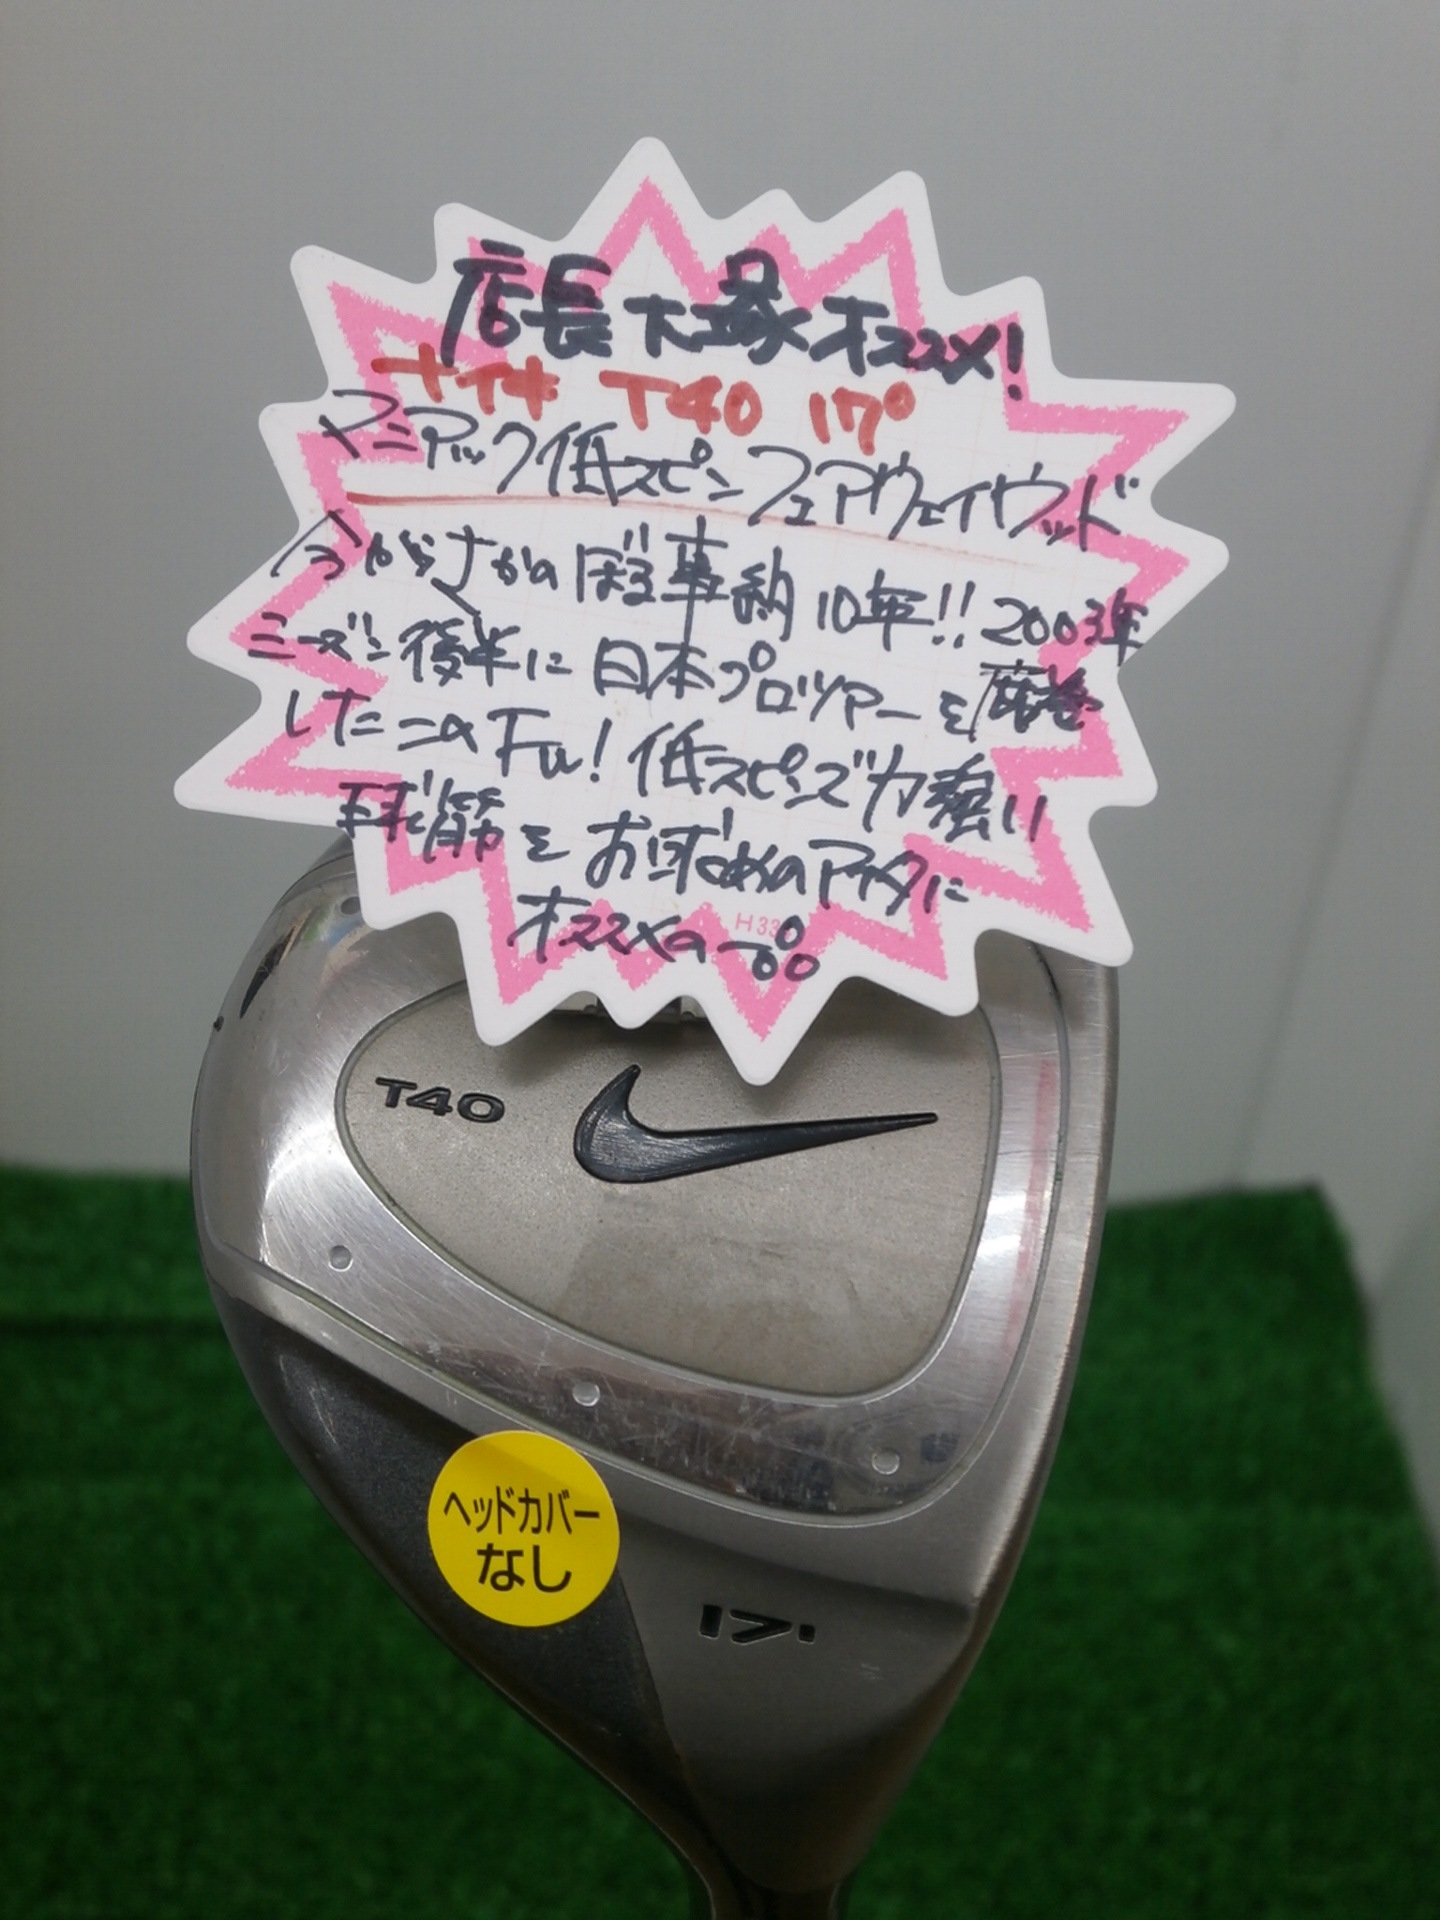 店長大塚オススメ!
ナイキ T40 17°
マニアック低スピンフェアウェイウッド
今からさかのぼる事約10年!! 2003年
シーズン後半に日本プロツアーを席巻
したこのFw! 低スピンで力強い
球筋をお求めのアナタに
オススメの一品
H33
T40
ヘッドカバー
なし
17°